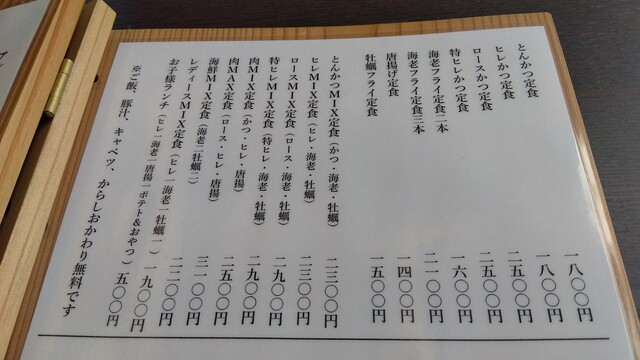 とんかつ定食 一八〇〇円
ヒレかつ定食 一八〇〇円
ロースかつ定食 二五〇〇円
特ヒレかつ定食 二五〇〇円
海老フライ定食二本 一六〇〇円
海老フライ定食三本 二一〇〇円
唐揚げ定食 一四〇〇円
牡蠣フライ定食 一五〇〇円
とんかつMIX定食(かつ・海老・牡蠣) 二三〇〇円
ヒレMIX定食(ヒレ・海老・牡蠣) 二三〇〇円
ロースMIX定食(ロース・海老・牡蠣) 二九〇〇円
特ヒレMIX定食(特ヒレ・海老・牡蠣) 二九〇〇円
肉MIX定食(かつ・ヒレ・唐揚) 二五〇〇円
肉MAX定食(ロース・ヒレ・唐揚) 三一〇〇円
海鮮MIX定食(海老二牡蠣二) 二二〇〇円
レディースMIX定食(ヒレ一海老一牡蠣一) 一九〇〇円
お子様ランチ(ヒレ一海老一唐揚一ポテト&おやつ) 五〇〇円
※ご飯、豚汁、キャベツ、からしおかわり無料です